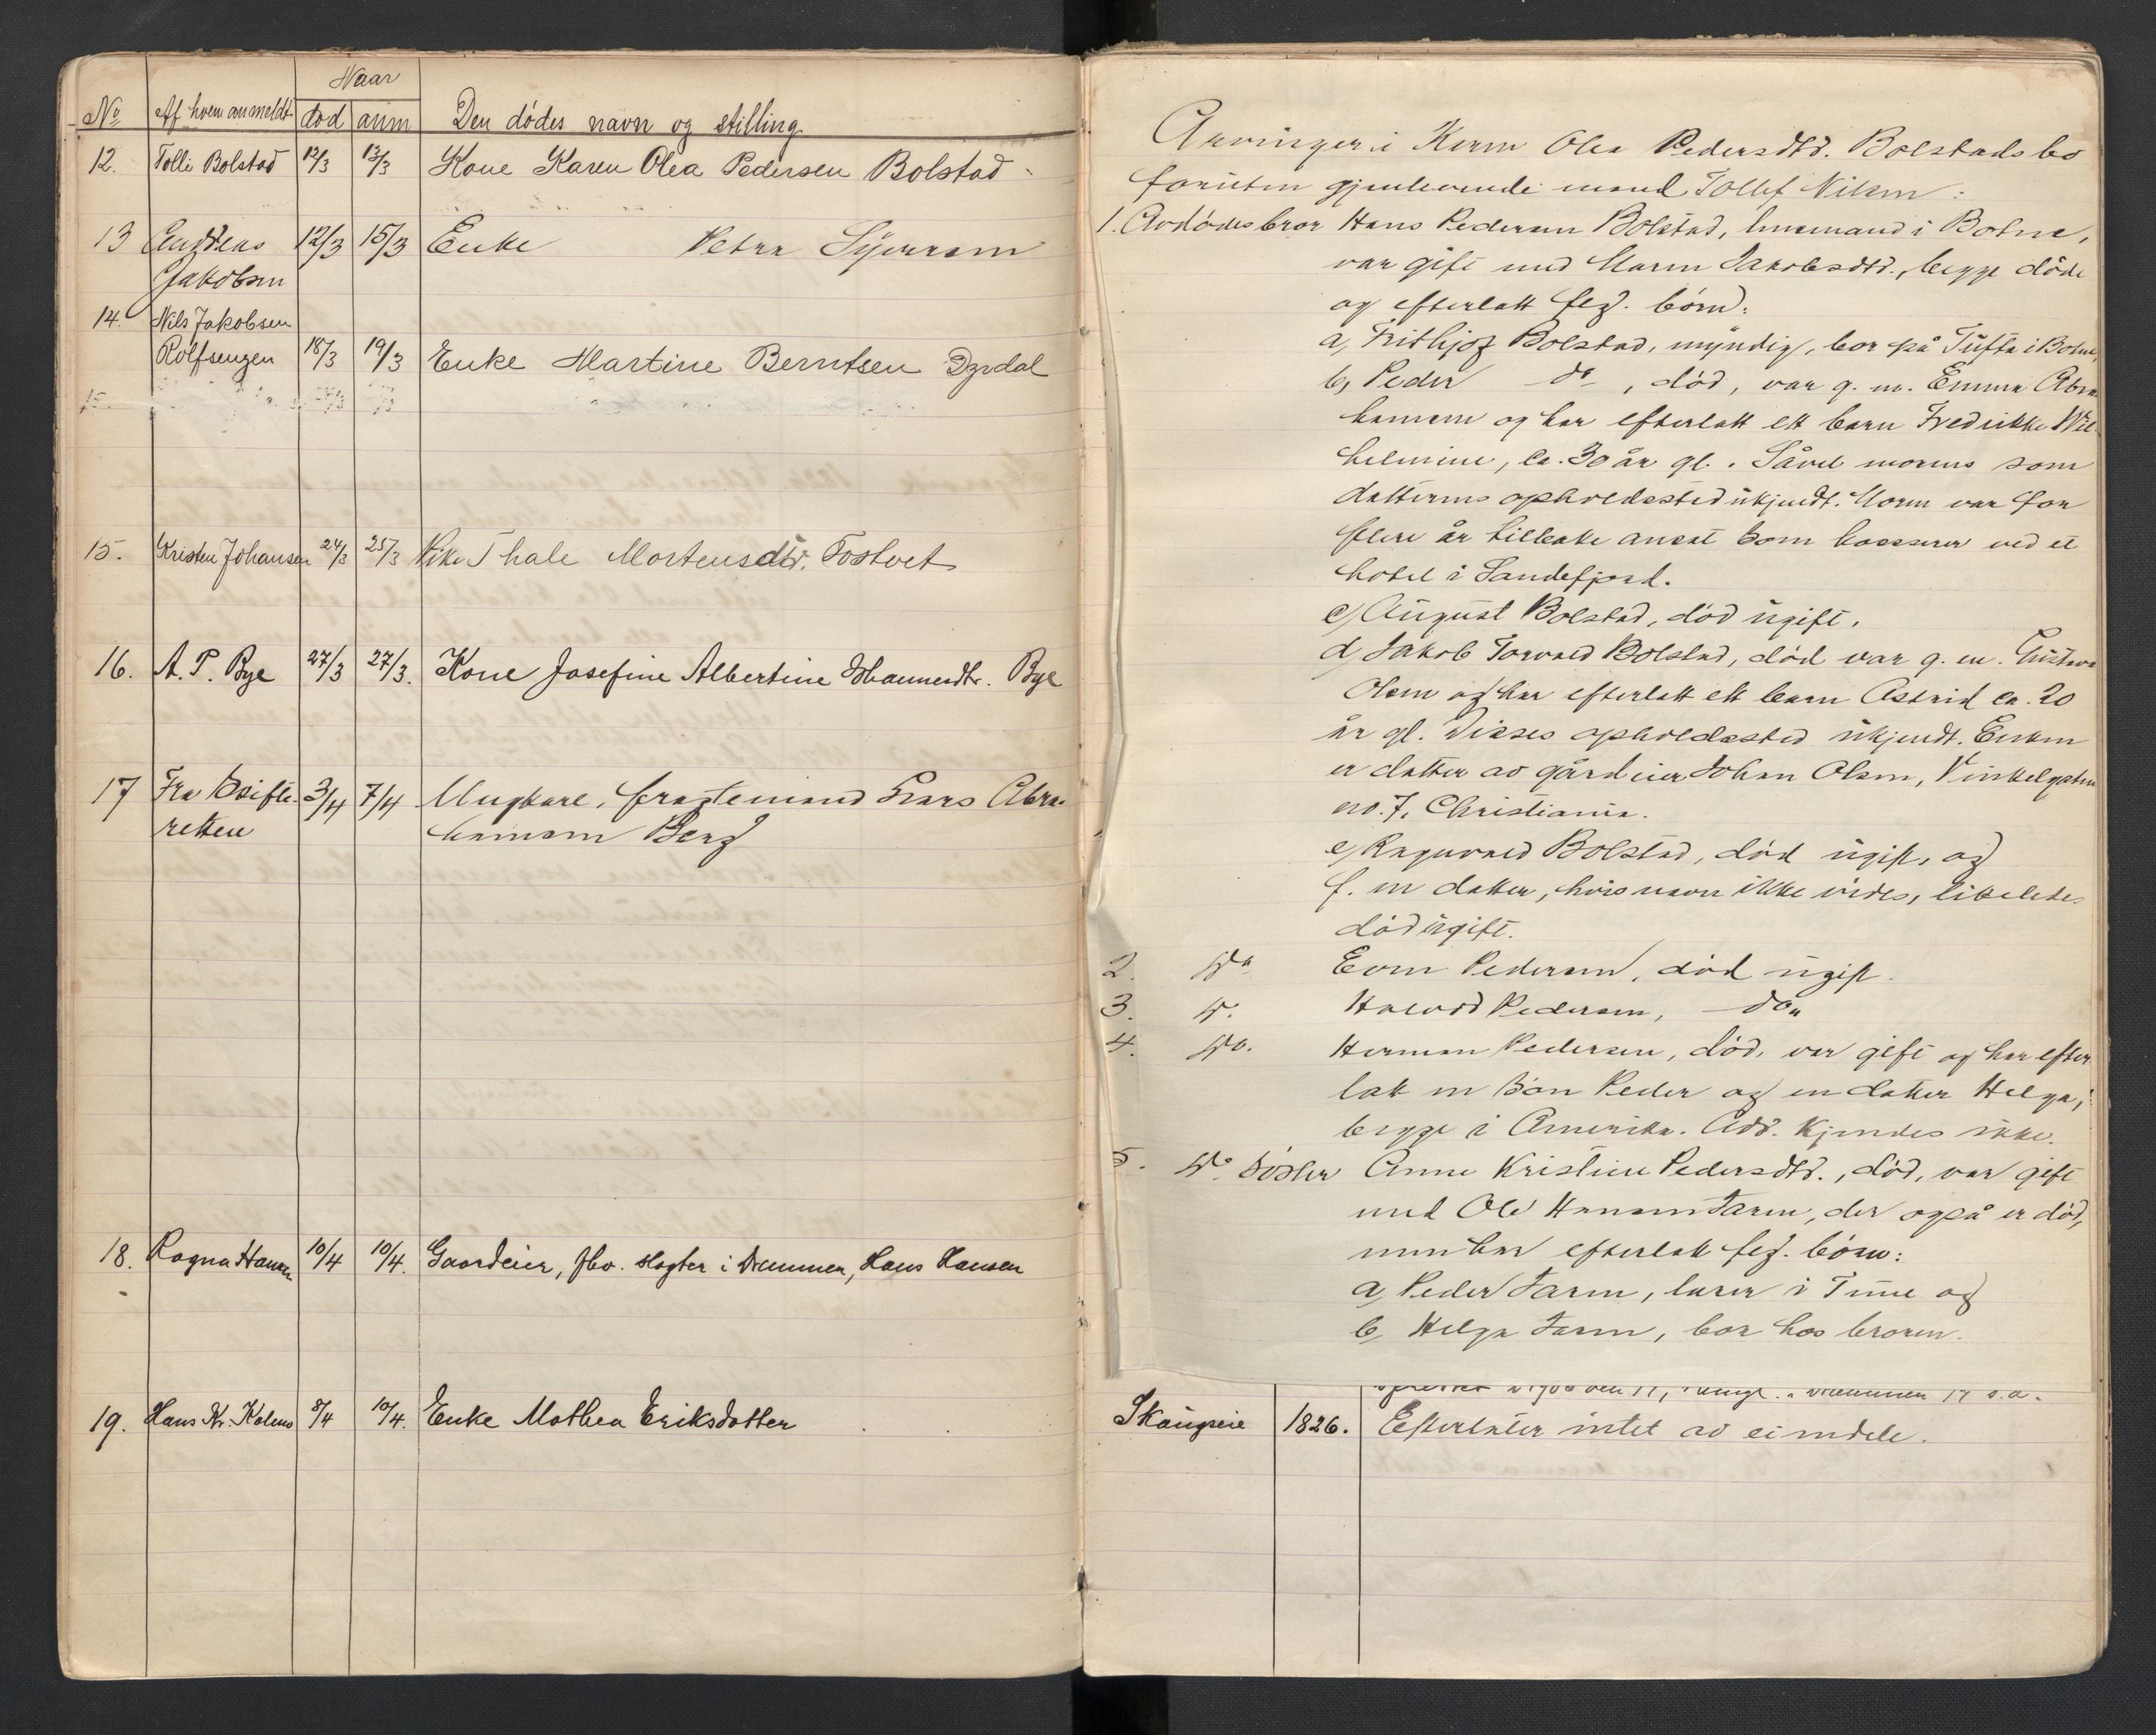 Naar
No Af hvem anmeldt død anm Den dødes navn og stilling
12. Tolli Bolstad 12/3 13/3 Kone Karen Olea Pedersen Bolstad
13 Andreas 12/3 15/3 Enke Petra
Jakobsen
14. Nils Jakobsen
Rolfsengen 18/3 19/3 Enke Martine Berntsen Dyrdal
15.
15. Kristen Johansen 24/3 25/3 Pike Thale Mortensdtr. Fostvet
16. A. P. Bye 27/3 27/3. Kone Josefine Albertine Johannesdtr. Bye
17 Fra Skifte- 3/4 7/4 Ungkarl, Lars Abra-
retten hamsen Berg
18. Ragna Hansen 10/4 10/4. Gaardeier, fhv. slagter i Drammen, Hans Hansen
19. Hans Kr. Kolens 8/4 10/4. Enke Mathea Eriksdatter
Arvinger i Karen Olea Pedersdtd. Bolstads bo
foruten gjenlevende mand Tollef Nilsen:
1. Avdødes bror Hans Pedersen Bolstad, husmand i Botne,
var gift med Maren Jakobsdtd., begge døde
og efterlatt flg. børn:
a, Frithjof Bolstad, myndig, bor på Tufte i Botne
b, Peder do, død, var g. m. Emma Abra-
hamsen og har efterlatt ett barn Fredrikke Wil-
helmine, ca. 30 år gl. Såvel morens som
datterens opholdssted ukjendt. Moren var for
flere år tilbake ansat som kasserer ved et
hotel i Sandefjord.
c, August Bolstad, død ugift.
d, Jakob Torvald Bolstad, død var g. m. Gustava
Olsen og har efterlatt ett barn Astrid ca. 20
år gl. Disses opholdssted ukjendt. Enken
er datter av gårdeier Johan Olsen, Vinkelgaten
no. 7, Christiania.
e, Ragnvald Bolstad, død ugift, og
f. en datter, hvis navn ikke vides, likeledes
død ugift.
2. Do Even Pedersen, død ugift.
3. D. Halvord Pedersen, do
4. Do. Herman Pedersen, død, var gift og har efter-
latt en søn Peder og en datter Helga,
begge i Amerika. Adr. kjendes ikke.
5. Do søster Anne Kristine Pedersdtd., død, var gift
med Ole Hansen Farm, der også er død,
men har efterlatt flg. børn:
a, Peder Farm, lærer i Time og
b, Helga Farm, bor hos broren.
Skaugeie 1826. Efterlater intet av eiendele.